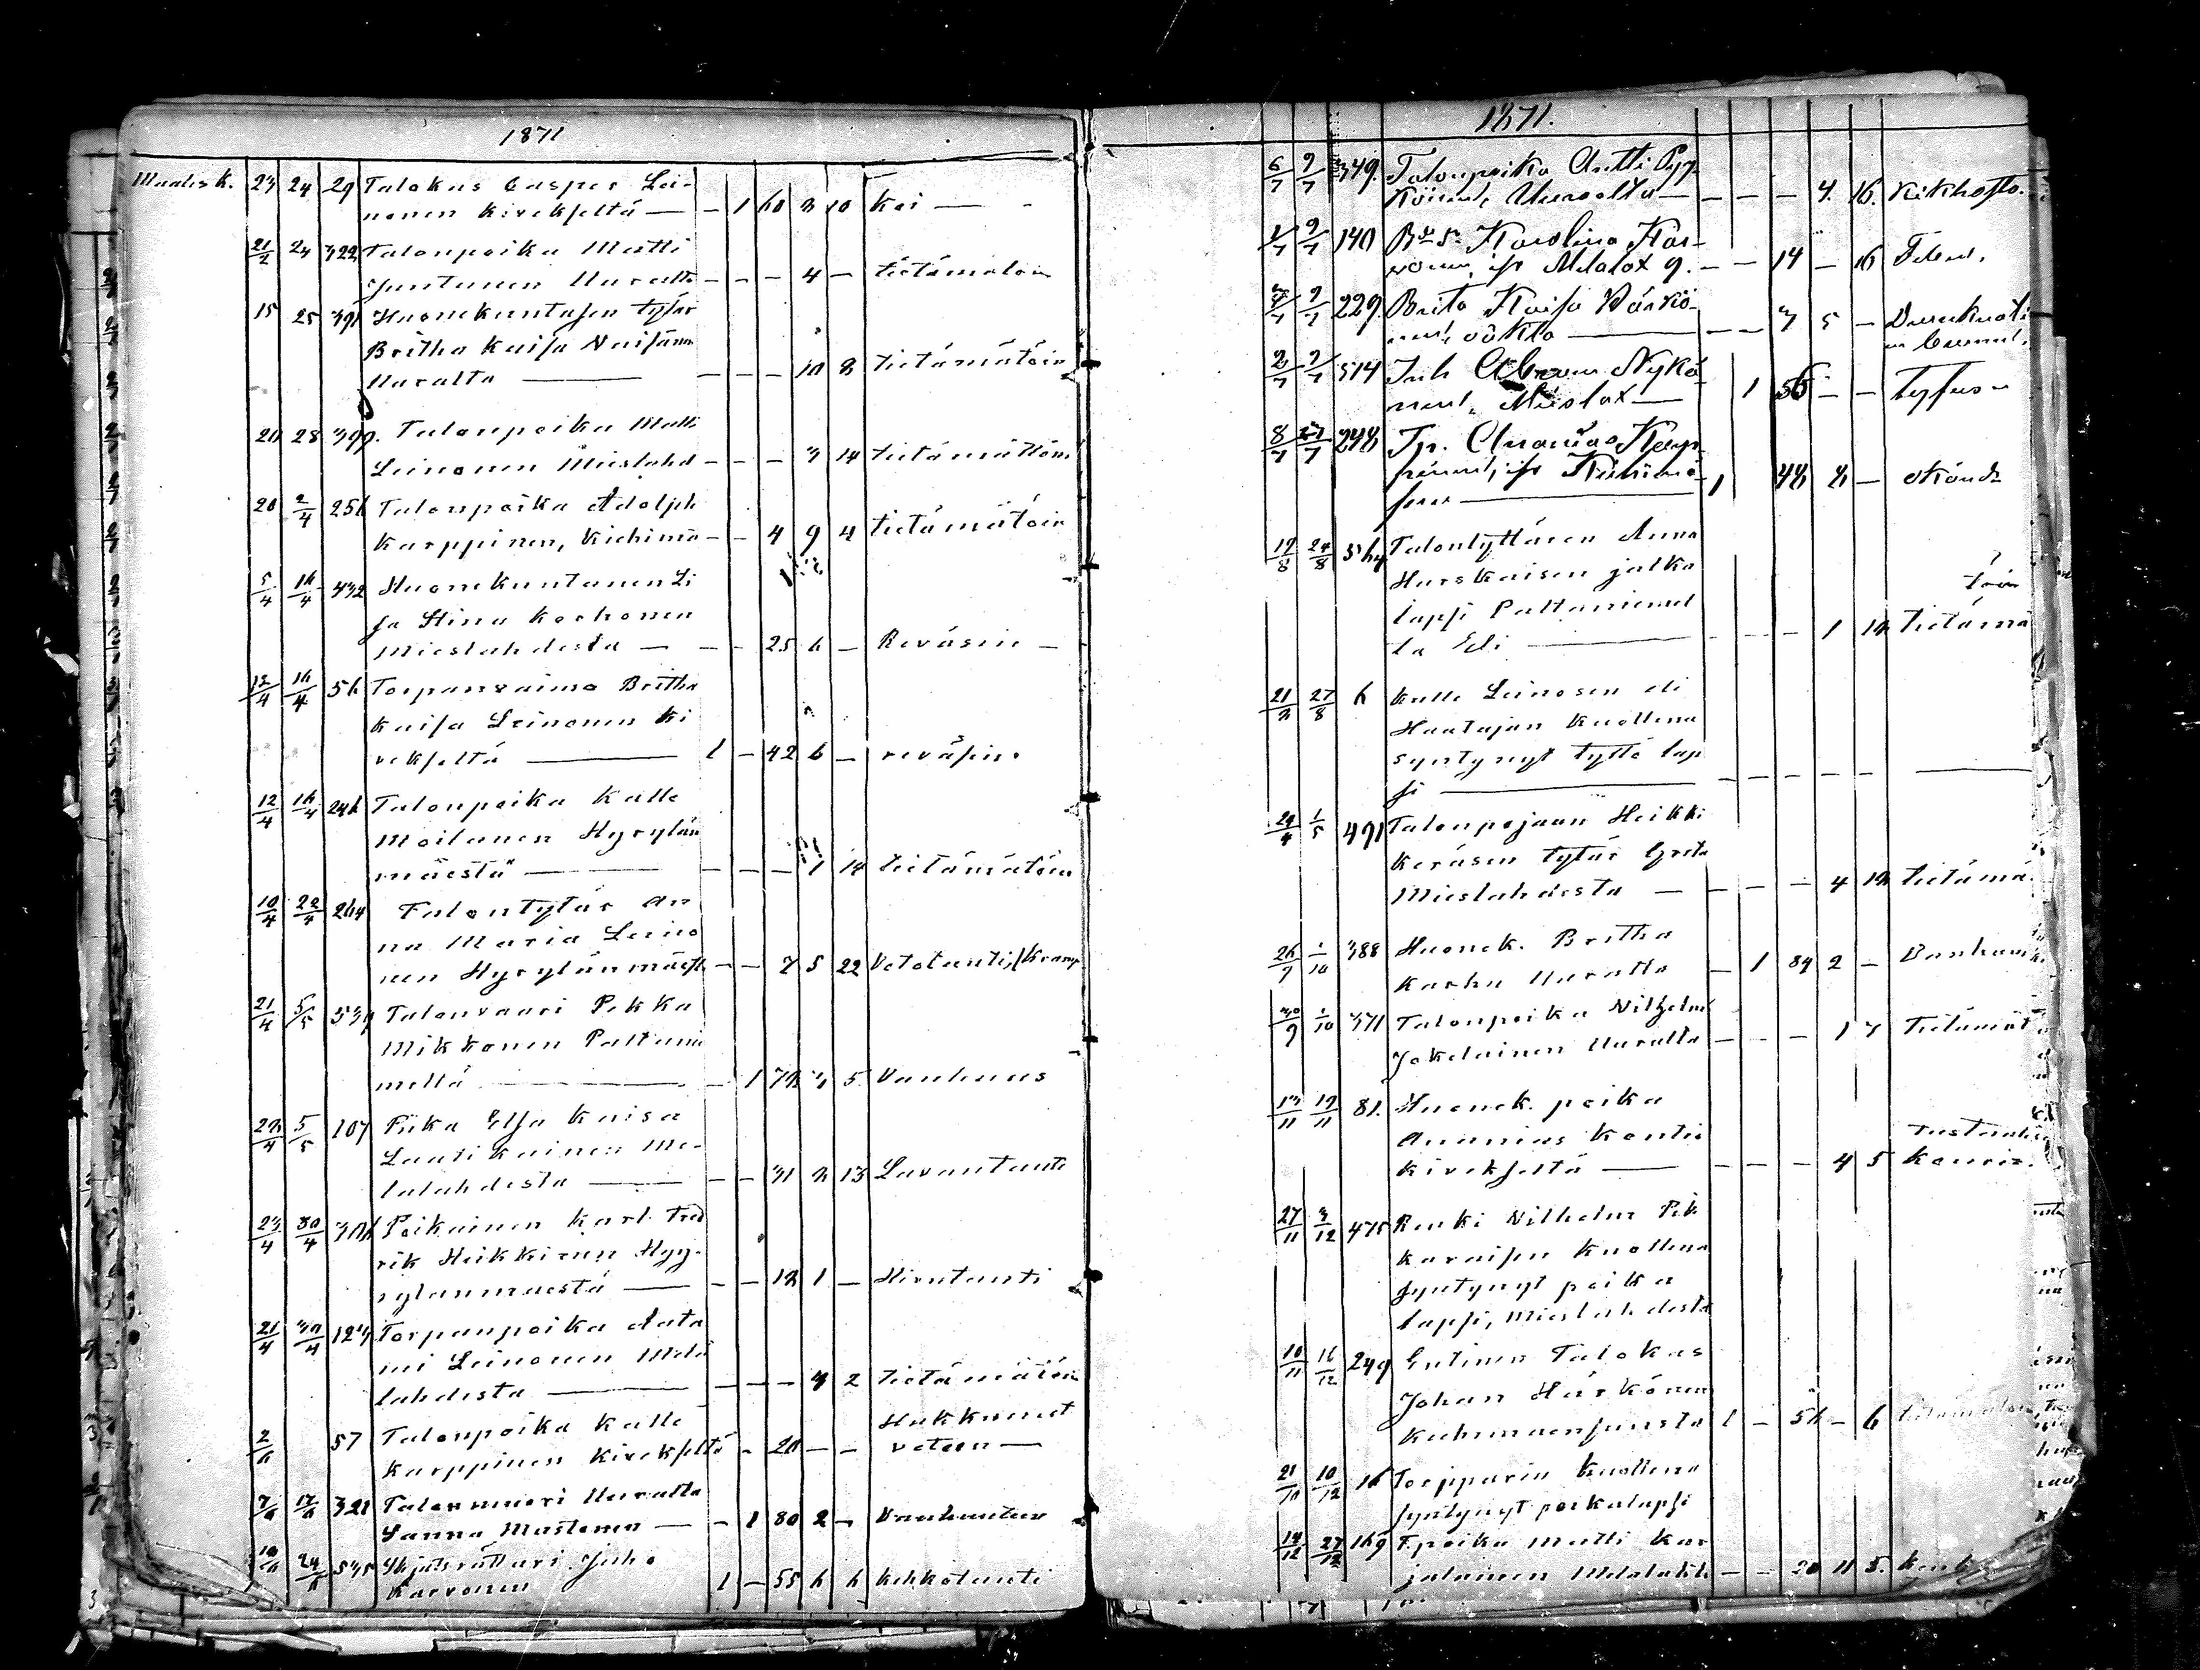 1871
Maalisk. 23 24 29 Talokas Casper Lei-
nonen Kivekseltä — — 1 60 3 10 Koi —
21/2 24 322 Talonpoika Matti
Juntunen Uuralta — — — 4 — tietämätöin
15 25 391 Huonekuntasen tytär
Britha Kaisa Naisänen
Uuralta — — — — 10 8 tietämätöin
20 28 399. Talonpoika Matti
Leinonen Mieslahd — — — 3 14 tietämätöin
20 2/4 256 Talonpoika Adolph
Karppinen, Kiehimä — — 4 9 4 tietämätöin
5/4 16/4 432 Huonekuntanen Li
sa Stina Korhonen
Mieslahdesta — — — 25 6 — Reväsin —
12/4 16/4 56 Torpanvaimo Britha
Kaisa Leinonen Ki
vekseltä — 1 — 42 6 — reväsin
12/4 16/4 246 Talonpoika Kalle
Moilanen Hyrylän
mäestä — — — — 1 14 tietämätöin
10/4 22/4 264 Talontytär An
na Maria Leino
nen Hyrylänmäestä — — 7 5 22 Vetotauti,/Kramp
21/4 5/5 539 Talonvaari Pekka
Mikkonen Paltanie
meltä — — 1 72 3 5 Vanhuus
22/4 5/5 107 Piika Elsa Kaisa
Lautikainen Me-
lalahdesta — — — 31 2 13 Lavantauti
23/4 30/4 306 Poikainen Karl Fred
rik Heikkinen Hy-
rylänmäestä — — — 12 1 — Hivutauti
21/4 30/4 123 Torpanpoika Aata
mi Leinonen Mela
lahdesta — — — — 4 2 tietämätöin
2/6 57 Talonpoika Kalle Hukkunut
Karppinen Kivekseltä — 20 — — veteen —
7/6 17/6 321 Talonmuori Uuralta
Sanna Mustonen — — 1 80 2 — Vanhuuden
10/6 24/6 535 Juho
Karvonen 1 — 55 6 6 Keuhkotauti
1871.
6/7 9/7 349. Talonpoika Antti Pyy-
könen, Uuralta — — — — 4. 16. Kikhosta.
9/7 140 Karolina Kar-
vonen, Melalax 9. — — 14 — 16 Feber.
9/7 229 Brita Kaisa Härkö-
nen, oäkta — — — 3 5 —
2/7 9/7 514 Inh Abram Nykä
nen, Mieslax — 1 56 — — Tyfus
8/7 248 Tp. Ananias Karp
pinen, ifr Kiehimä
suu — 1 48 8 — okänd
19/8 24/8 Talontyttären Anna
Hurskaisen jalka
lapsi Paltaniemel
ta Eli — — — — 1 12 tietämä
töin
27/8 6 Kalle Leinosen eli
Haatajan Kuollena
syntynyt tyttö lap
si — — — — — —
1/5 491 Talonpojaan Heikki
Keräsen tytär Greta
Mieslahdesta — — — — 4 12 tietämä
26/9 1/10 388 Huonek. Britha
Karhu Uuralta — 1 84 2 — Vanhuus
30/9 1/10 371 Talonpoika Vilhelm
Jokelainen Uuralta — — — 1 3 Tietämät
13/11 19/11 81. Huonek. poika
Ananias Kontio
Kivekseltä — — — — 4 5
27/11 3/12 475 Renki Vilhelm Pik
karaisen Kuollena
syntynyt poika
lapsi, Mieslahdesta
10/11 16/12 249 Entinen Talokas
Johan Härkönen
Kiehimänsuusta 1 — 56 — 6 tietämätöin
21/10 10/12 16 Torpparin Kuollena
syntynyt poikalapsi
19/12 27/12 169 Tpoika Matti Kar
jalainen Melalahd — — 20 11 5.